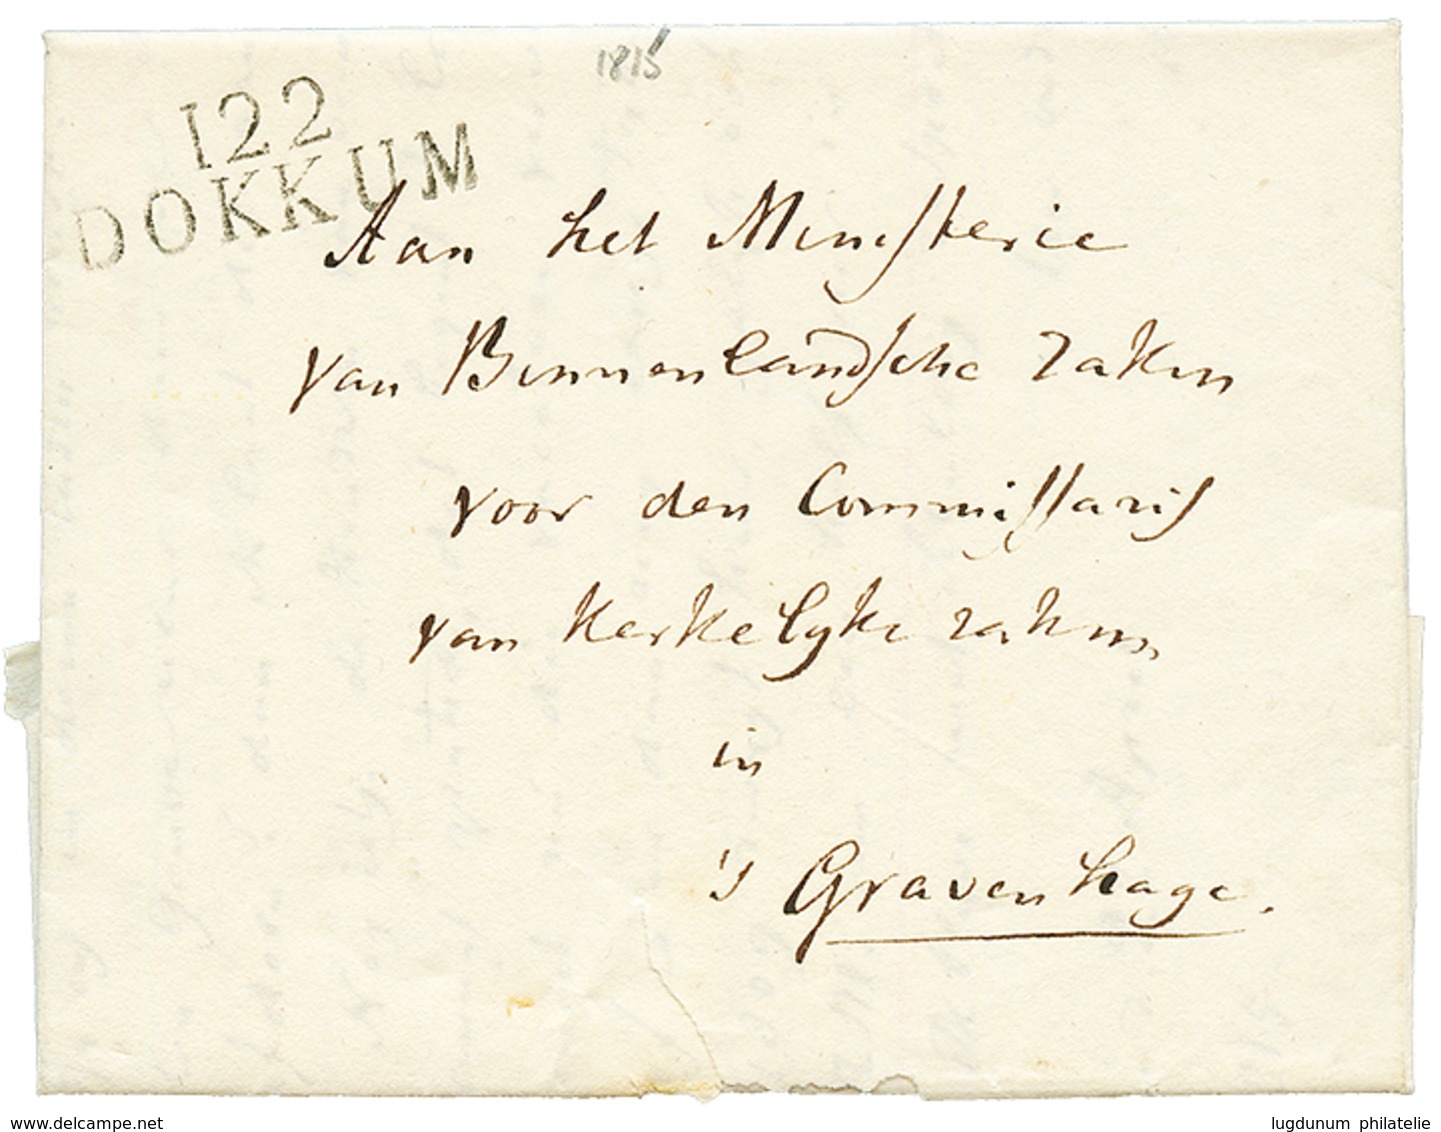 1815
122
DOKKUM
Aan het Ministerie
van Binnenlandsche zaken
voor den Commissaris
van Kerkelyke zaken
in
's Gravenhage.
www.delcampe.net
lugdunum philatelie